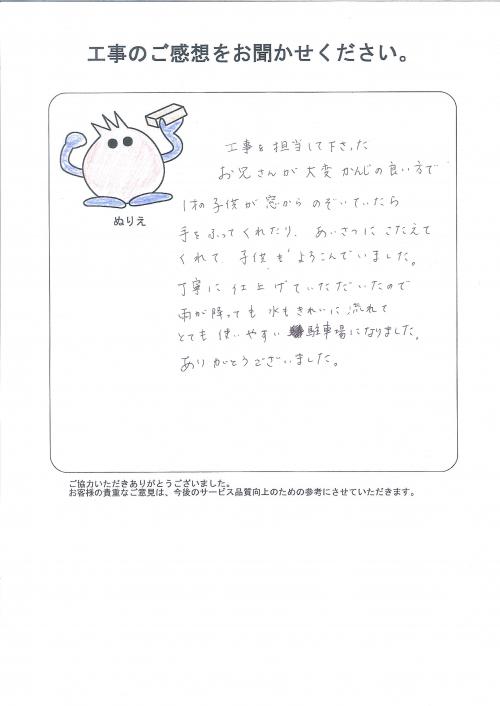 工事のご感想をお聞かせください。
ぬりえ
工事を担当して下さった
お兄さんが大変かんじの良い方で
1才の子供が窓からのぞいていたら
手をふってくれたり、あいさつにこたえて
くれて、子供もよろこんでいました。
丁寧に仕上げていただいたので
雨が降っても水もきれいに流れて
とても使いやすい駐車場になりました。
ありがとうございました。
ご協力いただきありがとうございました。
お客様の貴重なご意見は、今後のサービス品質向上のための参考にさせていただきます。